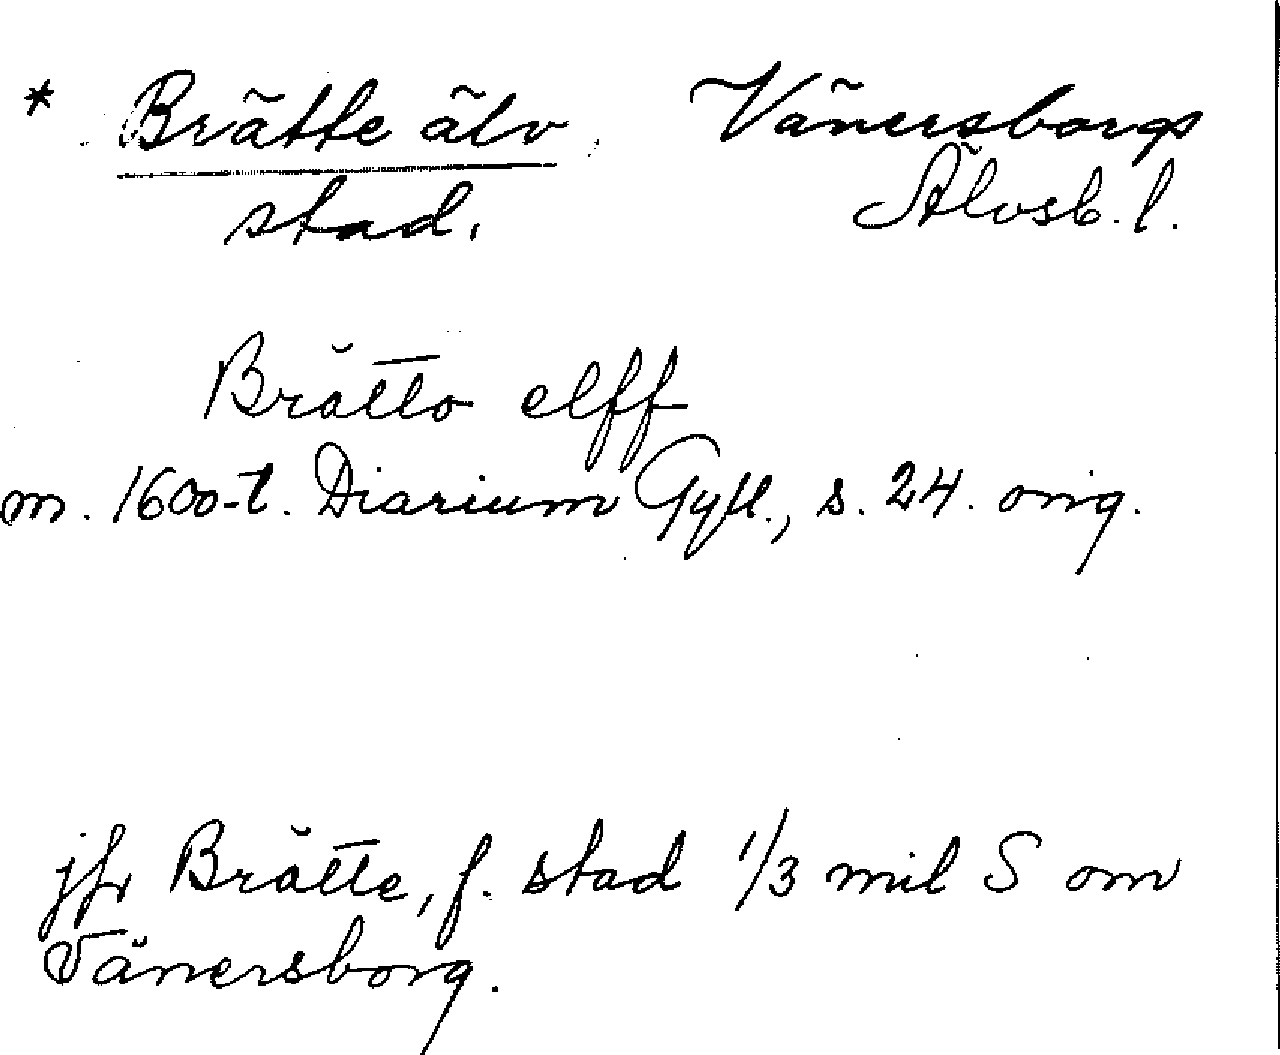 * Brätte älv Vänersborgs
stad. Älvsb. l.
Brätto elff
m. 1600-t. Diarium Gyll., s. 24. orig.
jfr Brätte, f. stad 1/3 mil S om
Vänersborg.